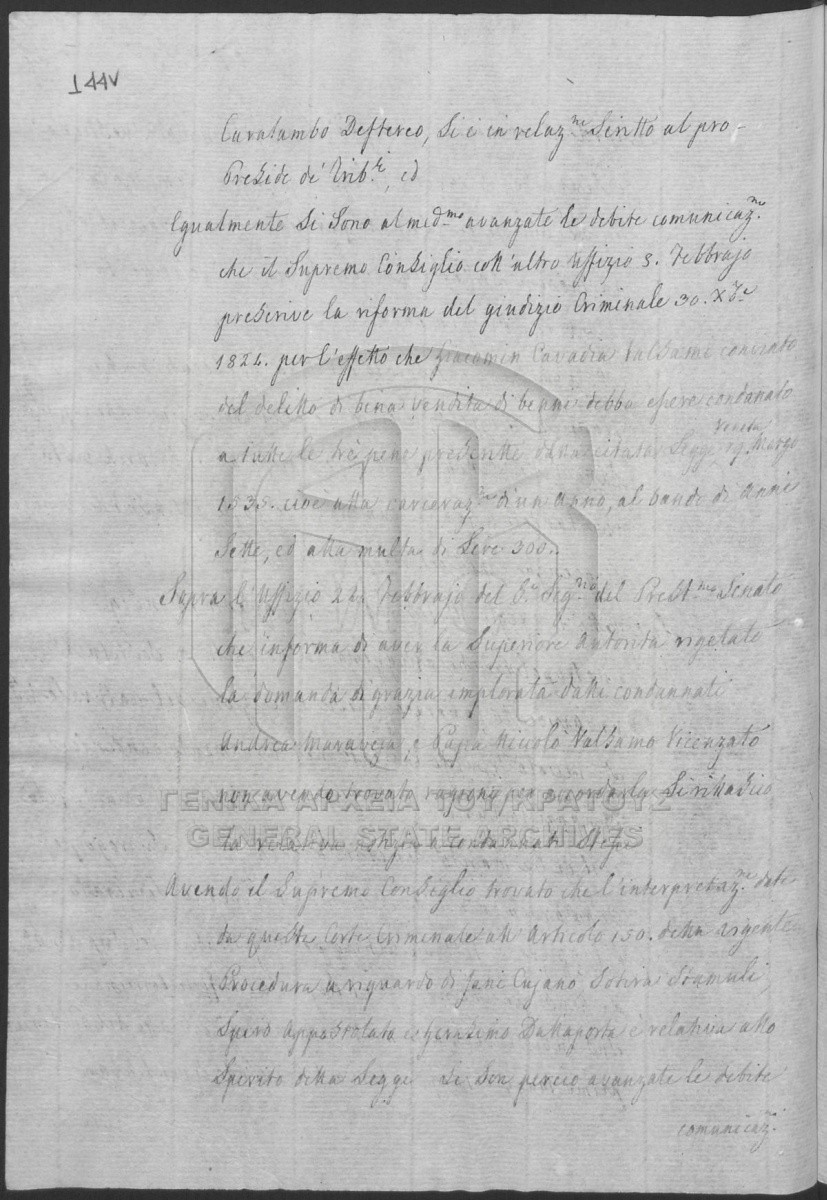 144v
Caralambo Deftereo, Si è in relaz.ne Scritto al pro-
Preside de' Trib.li, ed
Egualmente Si Sono al med.mo avanzate le debite comunicaz.ne
che il Supremo Consiglio coll'altro Uffizio 3. Febbrajo
prescrive la riforma del giudizio Criminale 30. Xb.e
1824. per l'effetto che Giacomin Cavadia Valsami convinto
del delitto di bina vendita di benni debba essere condanato
a tutte le tre pene prescritte dalla citata Legge Veneta 29. Marzo
1535. cioè alla carceraz.ne di un anno, al bando di anni
Sette, ed alla multa di Lire 300.
Sopra l'Uffizio 24 Febbrajo del Seg.rio del Prest.mo Senato
che informa di aver la Superiore Autorità rigetato
la domanda di grazia implorata dalli condannati
Andrea Maraveja, e Papà Nicolò Valsamo Vicenzato
non avendo trovato ragioni per accordarla
condannati
Avendo il Supremo Consiglio trovato che l'interpretaz.ne data
da queste Corte Criminale all Articolo 150. della vigente
Procedura a riguardo di Jani Cujano, Sotira Stamuli,
Spiro Appostolato e Gerasimo Dallaporta è relativa allo
Spirito della Legge Si Son perciò avanzate le debite
comunicaz.
ΓΕΝΙΚΑ ΑΡΧΕΙΑ ΤΟΥ ΚΡΑΤΟΥΣ
GENERAL STATE ARCHIVES